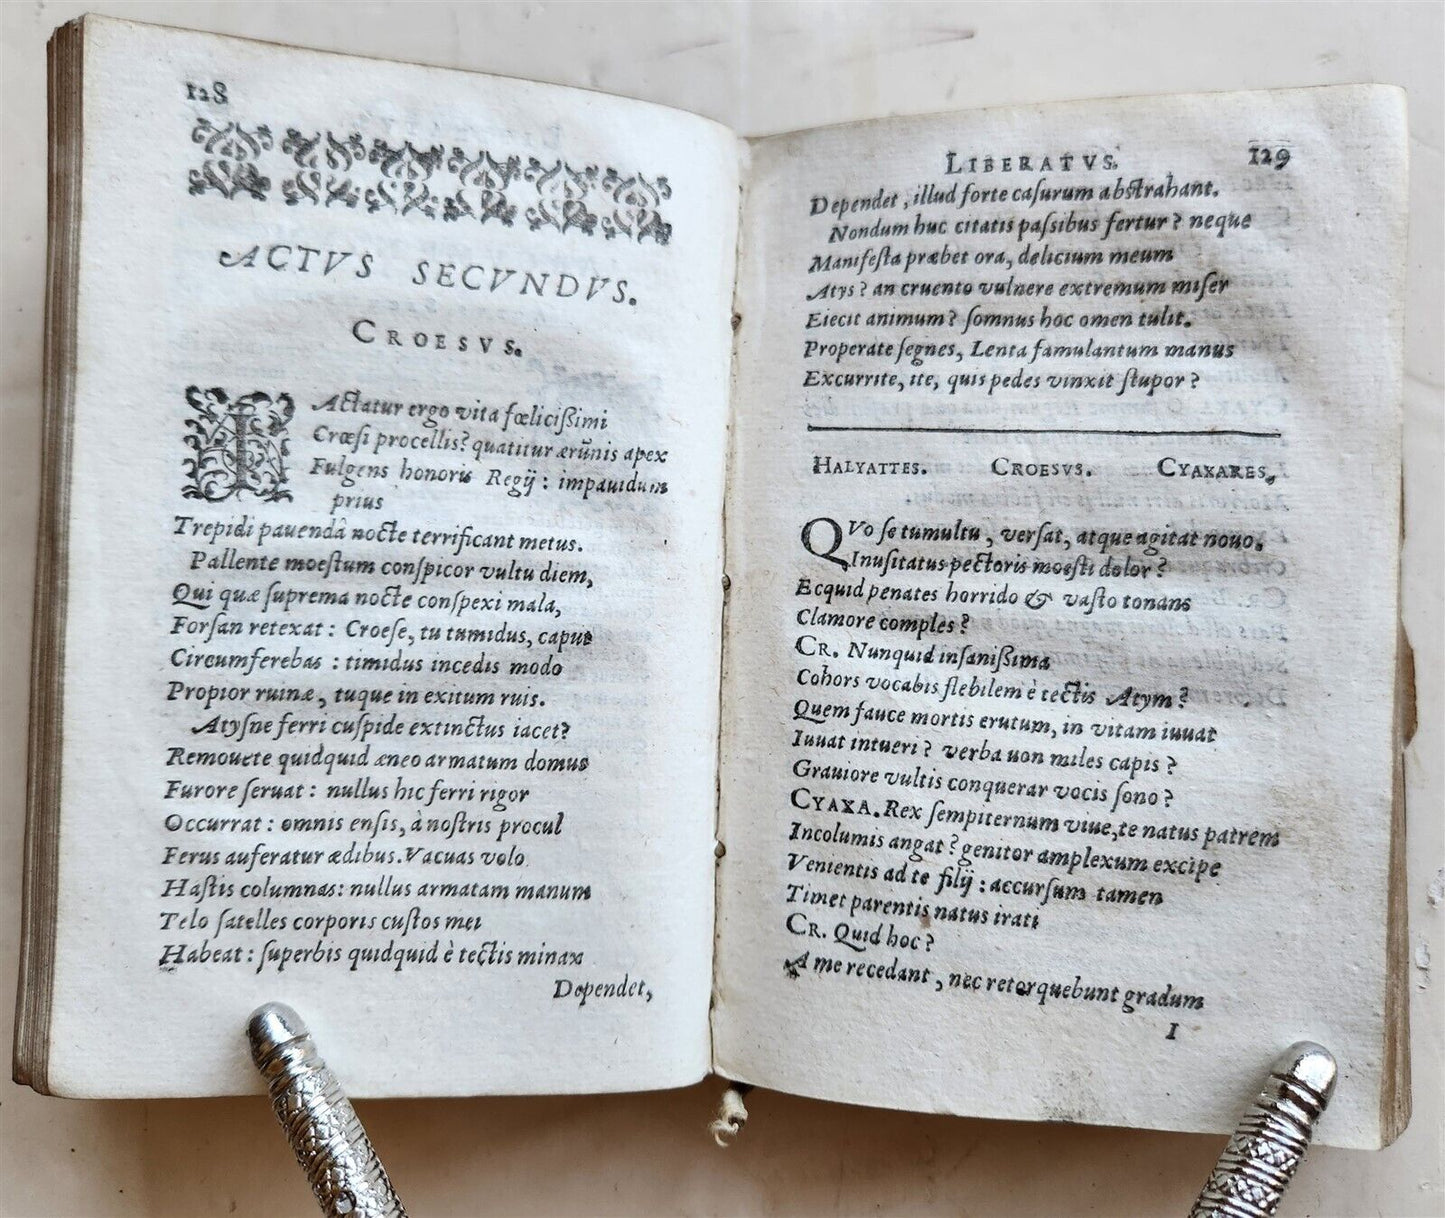 128
ACTVS SECVNDVS.
CROESVS.
IActatur ergo vita fœliciſsimi
Crœſi procellis? quatitur ærũnis apex
Fulgens honoris Regij : impauidum
prius
Trepidi pauendâ nocte terrificant metus.
Pallente moeſtum conſpicor vultu diem,
Qui quæ ſuprema nocte conſpexi mala,
Forſan retexat : Croeſe, tu tumidus, caput
Circumferebas : timidus incedis modo
Propior ruinæ, tuque in exitum ruis.
Atyſne ferri cuſpide extinctus iacet?
Remouete quidquid æneo armatum domus
Furore ſeruat : nullus hic ferri rigor
Occurrat : omnis enſis, à noſtris procul
Ferus auferatur ædibus. Vacuas volo
Haſtis columnas : nullus armatam manum
Telo ſatelles corporis cuſtos mei
Habeat : ſuperbis quidquid è tectis minax
Dependet,
LIBERATVS. 129
Dependet, illud forte caſurum abſtrahant.
Nondum huc citatis paſsibus fertur? neque
Manifeſta præbet ora, delicium meum
Atys? an cruento vulnere extremum miſer
Eiecit animum? ſomnus hoc omen tulit.
Properate ſegnes, Lenta famulantum manus
Excurrite, ite, quis pedes vinxit ſtupor?
HALYATTES. CROESVS. CYAXARES.
QVo ſe tumultu, verſat, atque agitat nouo,
Inuſitatus pectoris moeſti dolor?
Ecquid penates horrido & vaſto tonans
Clamore comples?
CR. Nunquid inſaniſsima
Cohors vocabis flebilem è tectis Atym?
Quem fauce mortis erutum, in vitam iuuat
Iuuat intueri? verba uon miles capis?
Grauiore vultis conquerar vocis ſono?
CYAXA. Rex ſempiternum viue, te natus patrem
Incolumis angat? genitor amplexum excipe
Venientis ad te filij : accurſum tamen
Timet parentis natus irati
CR. Quid hoc?
A me recedant, nec retorquebunt gradum
I